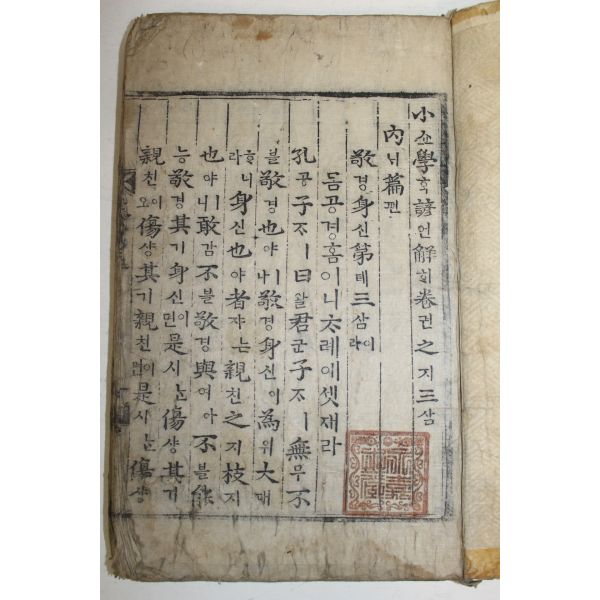 小쇼學ᄒᆞᆨ諺언解ᄒᆡ卷권之지三삼
內ᄂᆡ篇편
敬경身신第뎨三삼이라
몸공경홈이니ᄎᆞ례이셋재라
孔공子ᄌᆞㅣ曰왈君군子ᄌᆞㅣ無무不
블敬경也야ㅣ나敬경身신이為위大대
ᄒᆞ니라身신也야者쟈ᄂᆞᆫ親친之지枝지
也야ㅣ니敢감不블敬경與여아不블能
능敬경其기身신이면是시ᄂᆞᆫ傷샹其기
親친이오傷샹其기親친이면是시ᄂᆞᆫ傷샹